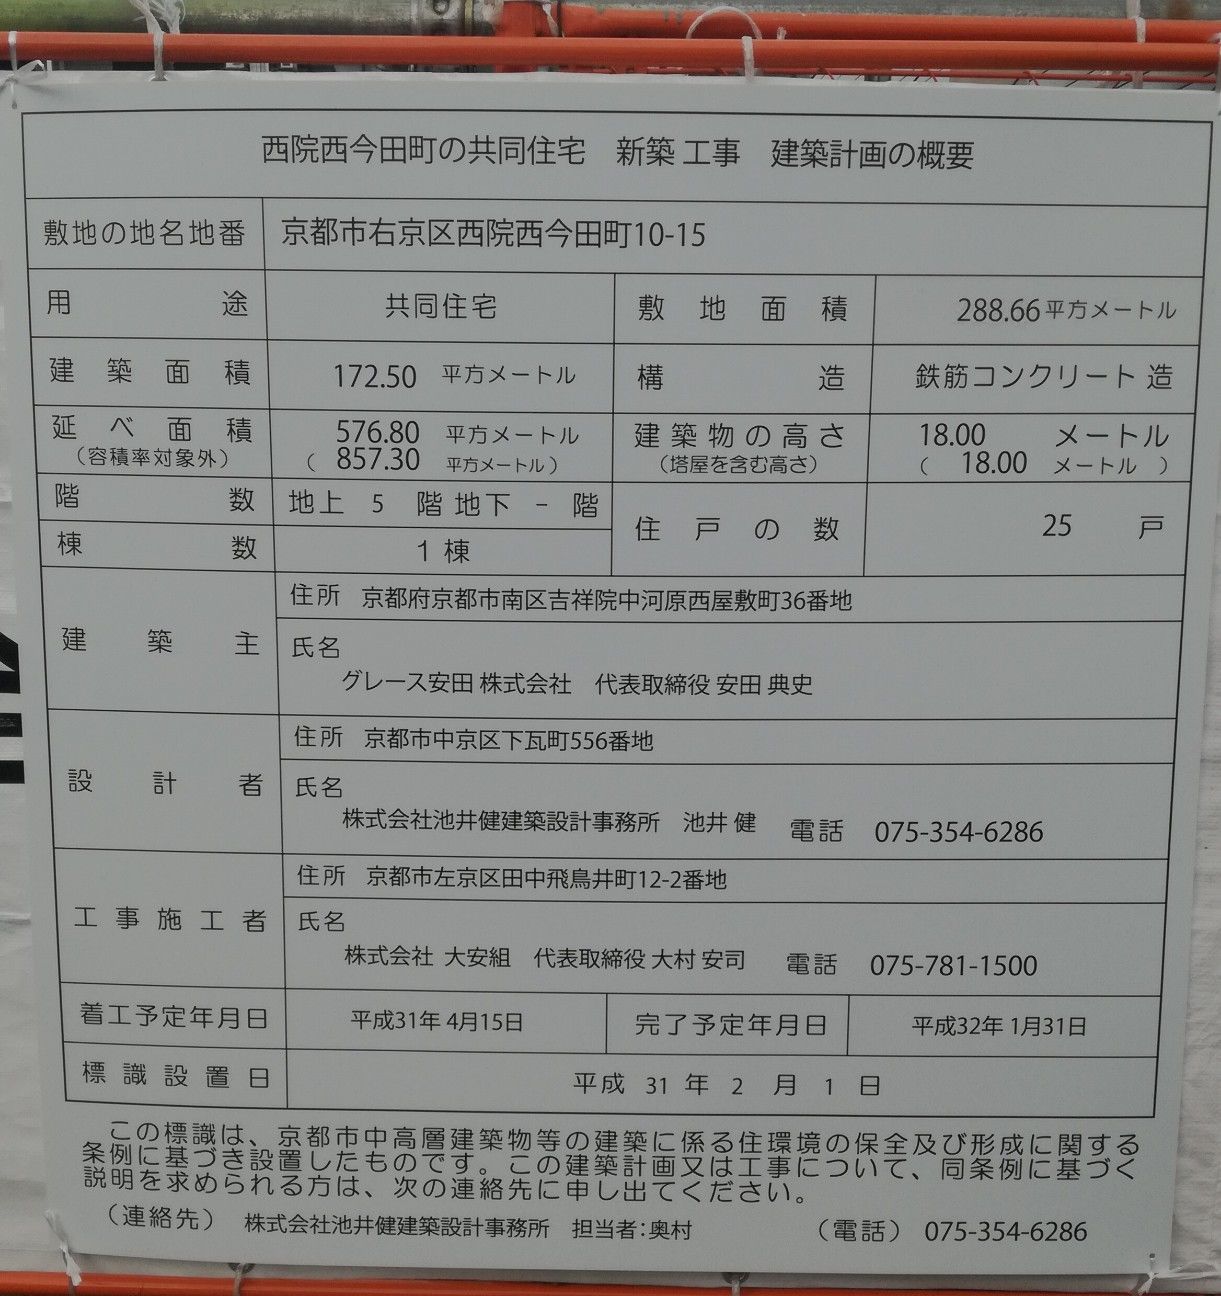 西院西今田町の共同住宅　新築 工事　建築計画の概要
敷地の地名地番　京都市右京区西院西今田町10-15
用途　共同住宅　敷地面積　288.66平方メートル
建築面積　172.50 平方メートル　構造　鉄筋コンクリート 造
延べ面積　576.80 平方メートル　建築物の高さ　18.00 メートル
（容積率対象外）　（ 857.30 平方メートル）　（塔屋を含む高さ）　（ 18.00 メートル ）
階数　地上 5 階 地下 - 階
棟数　1 棟　住戸の数　25 戸
住所　京都府京都市南区吉祥院中河原西屋敷町36番地
建築主　氏名
グレース安田 株式会社　代表取締役 安田 典史
住所　京都市中京区下瓦町556番地
設計者　氏名
株式会社池井健建築設計事務所　池井 健　電話　075-354-6286
住所　京都市左京区田中飛鳥井町12-2番地
工事施工者　氏名
株式会社 大安組　代表取締役 大村 安司　電話　075-781-1500
着工予定年月日　平成31年 4月15日　完了予定年月日　平成32年 1月31日
標識設置日　平成 31 年 2 月 1 日
この標識は、京都市中高層建築物等の建築に係る住環境の保全及び形成に関する
条例に基づき設置したものです。この建築計画又は工事について、同条例に基づく
説明を求められる方は、次の連絡先に申し出てください。
（連絡先）　株式会社池井健建築設計事務所　担当者：奥村　（電話） 075-354-6286